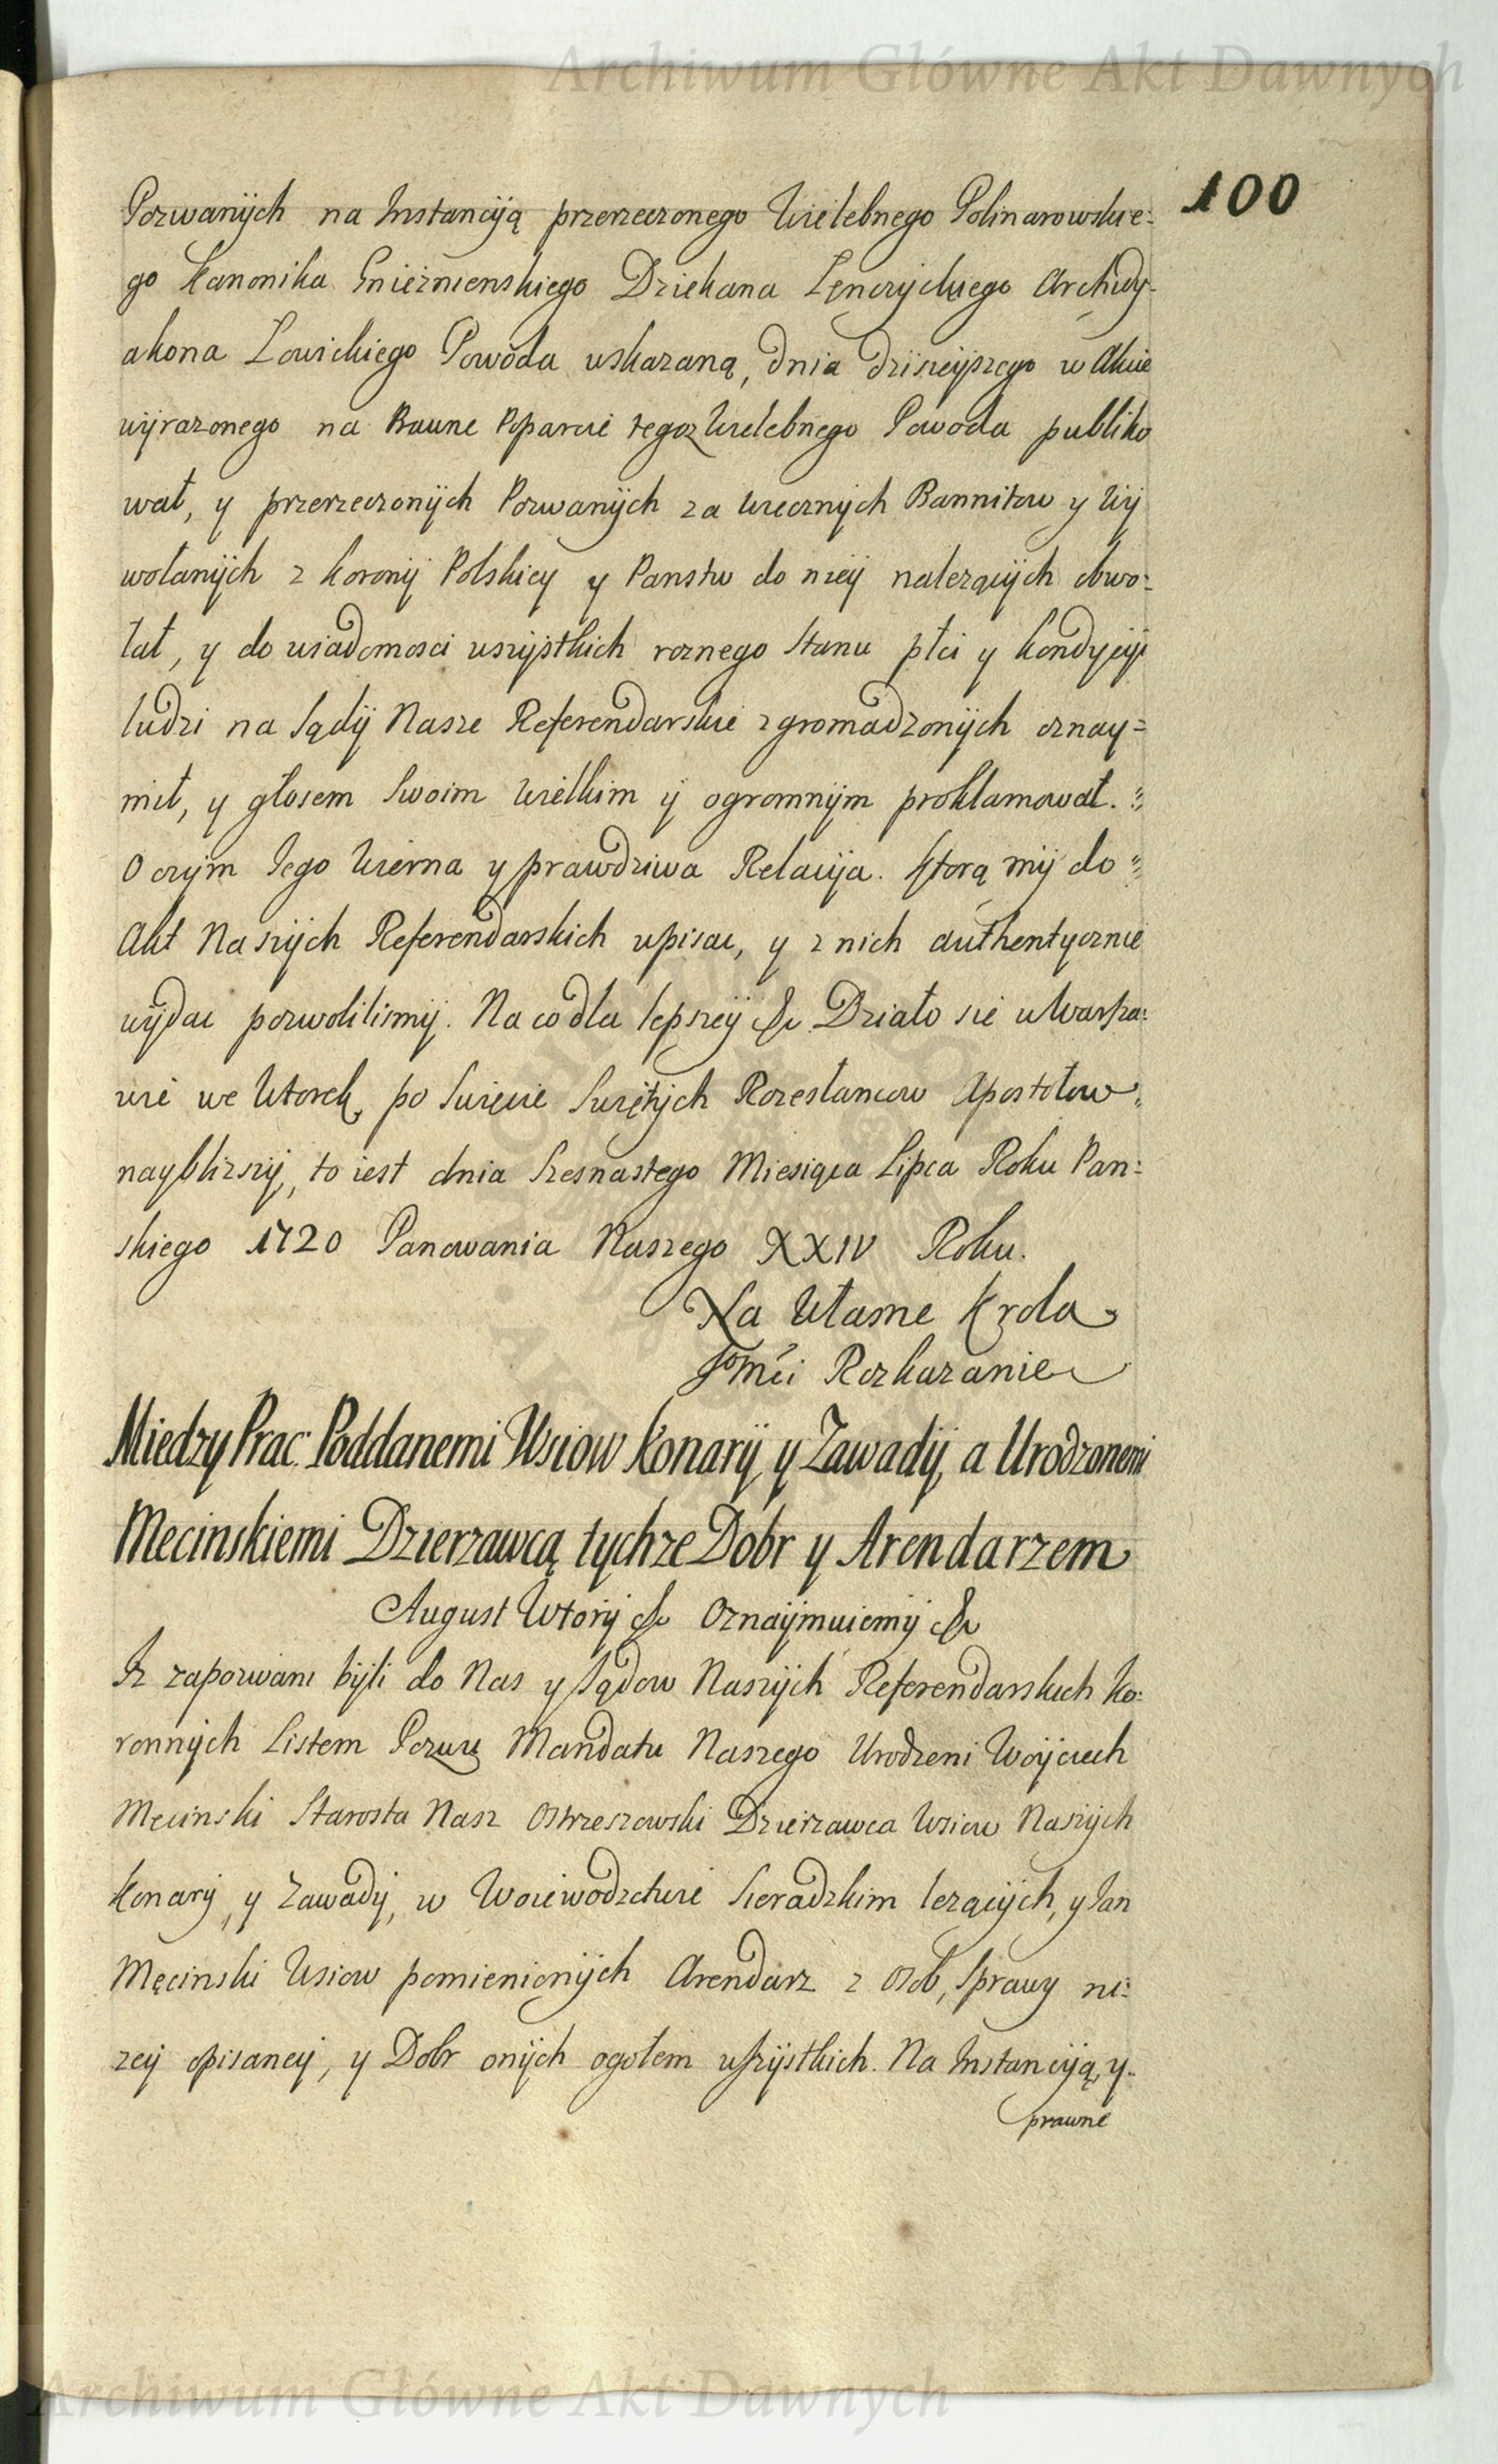 Archiwum Główne Akt Dawnych
100
Pozwanych na Instancyją przerzeczonego Wielebnego Polinarowskie-
go Kanonika Gnieznienskiego Dziekana Lęnczyckiego Archidy-
akona Lowickiego Powoda wskazaną, dnia dzisieyszego w Akcie
wyrazonego na Prawne Poparcie tegoz Wielebnego Powoda publiko
wał, y przerzeczonych Pozwanych za wiecznych Bannitow y Wy
wołanych z Korony Polskiey y Panstw do niey nalezących obwo-
łał, y do wiadomosci wszystkich roznego Stanu płci y Kondycyi
ludzi na Sądy Nasze Referendarskie zgromadzonych oznay=
mił, y głosem Swoim wielkim y ogromnym proklamował.
O czym Jego wierna y prawdziwa Relacyja. Ktorą my do
Akt Naszych Referendarskich wpisac, y z nich authentycznie
wydac pozwolilismy. Na co dla lepszey &c Działo sie w Warsza-
wie we Wtorek po Swięcie Swiętych Rozesłancow Apostołow
nayblizszy, to iest dnia Szesnastego Miesiąca Lipca Roku Pan-
skiego 1720 Panowania Naszego XXIV Roku.
Na Własne Krola
Jomci Rozkazanie
Miedzy Prac: Poddanemi Wsiow Konary y Zawady, a Urodzonemi
Mecinskiemi Dzierzawcą tychze Dobr y Arendarzem
August Wtory &c Oznaymuiemy &c
Iz zapozwani byli do Nas y Sądow Naszych Referendarskich Ko-
ronnych Listem Pozwu Mandatu Naszego Urodzeni Woyciech
Męcinski Starosta Nasz Ostrzeszowski Dzierzawca Wsiow Naszych
Konary, y Zawady, w Woiewodztwie Sieradzkim lezących, y Jan
Męcinski Wsiow pomienionych Arendarz z Osob, Sprawy ni-
zey opisaney, y Dobr onych ogołem wszystkich. Na Instancyją, y
prawne
Archiwum Główne Akt Dawnych